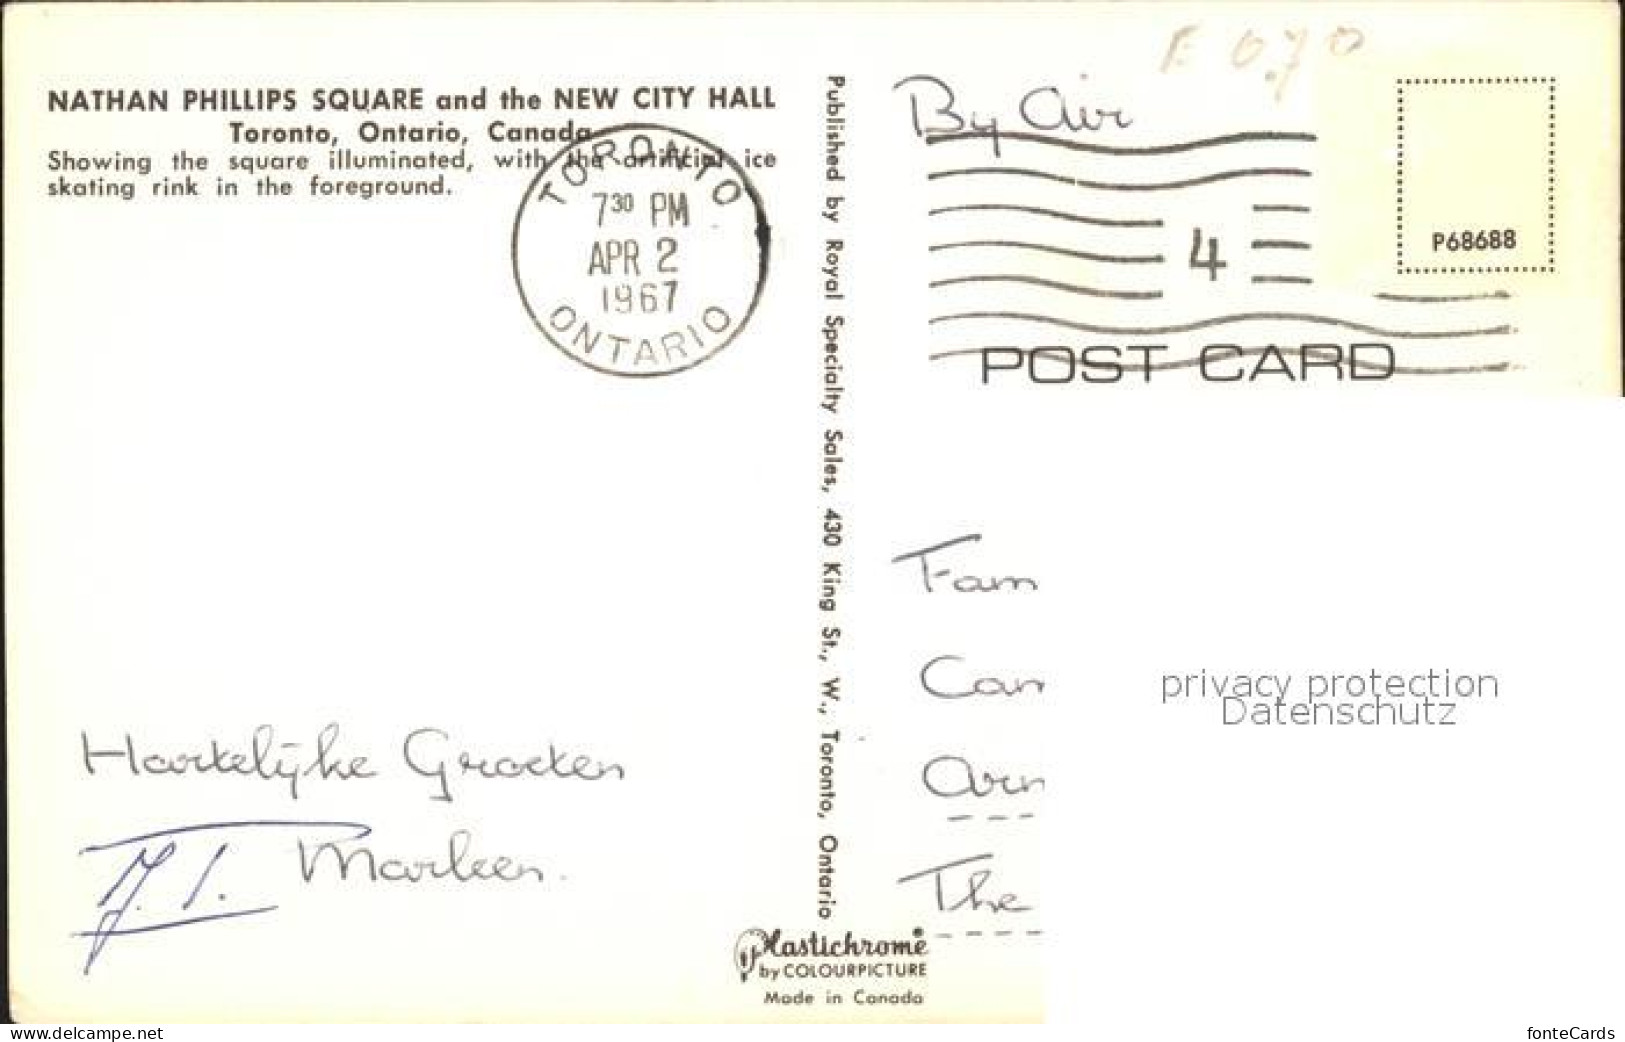 NATHAN PHILLIPS SQUARE and the NEW CITY HALL
Toronto, Ontario, Canada
Showing the square illuminated, with the artificial ice
skating rink in the foreground.
TORONTO
7 30 PM
APR 2
1967
ONTARIO
Hartelijke Groeten
Marleen.
Published by Royal Specialty Sales, 430 King St., W., Toronto, Ontario
Plastichrome®
by COLOURPICTURE
Made in Canada
F 0.70
By Air
4
P68688
POST CARD
Fam
The
privacy protection
Datenschutz
www.delcampe.net
fonteCards